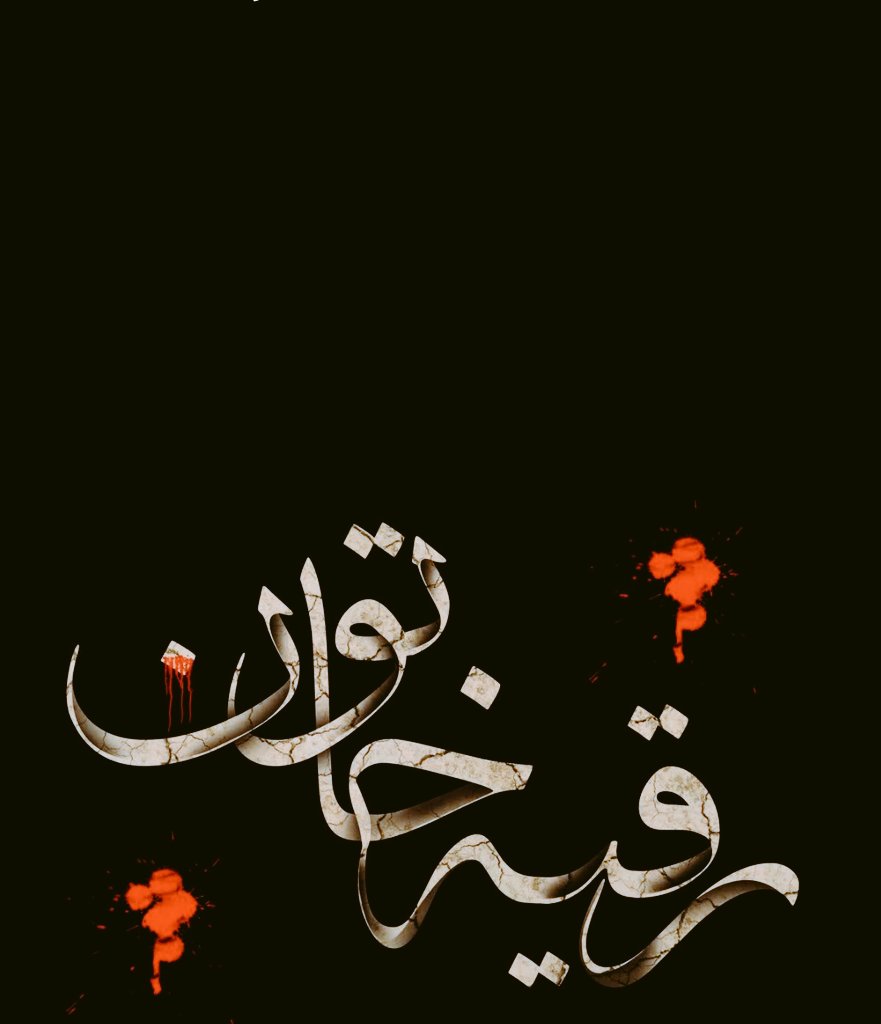 رقیه خاتون